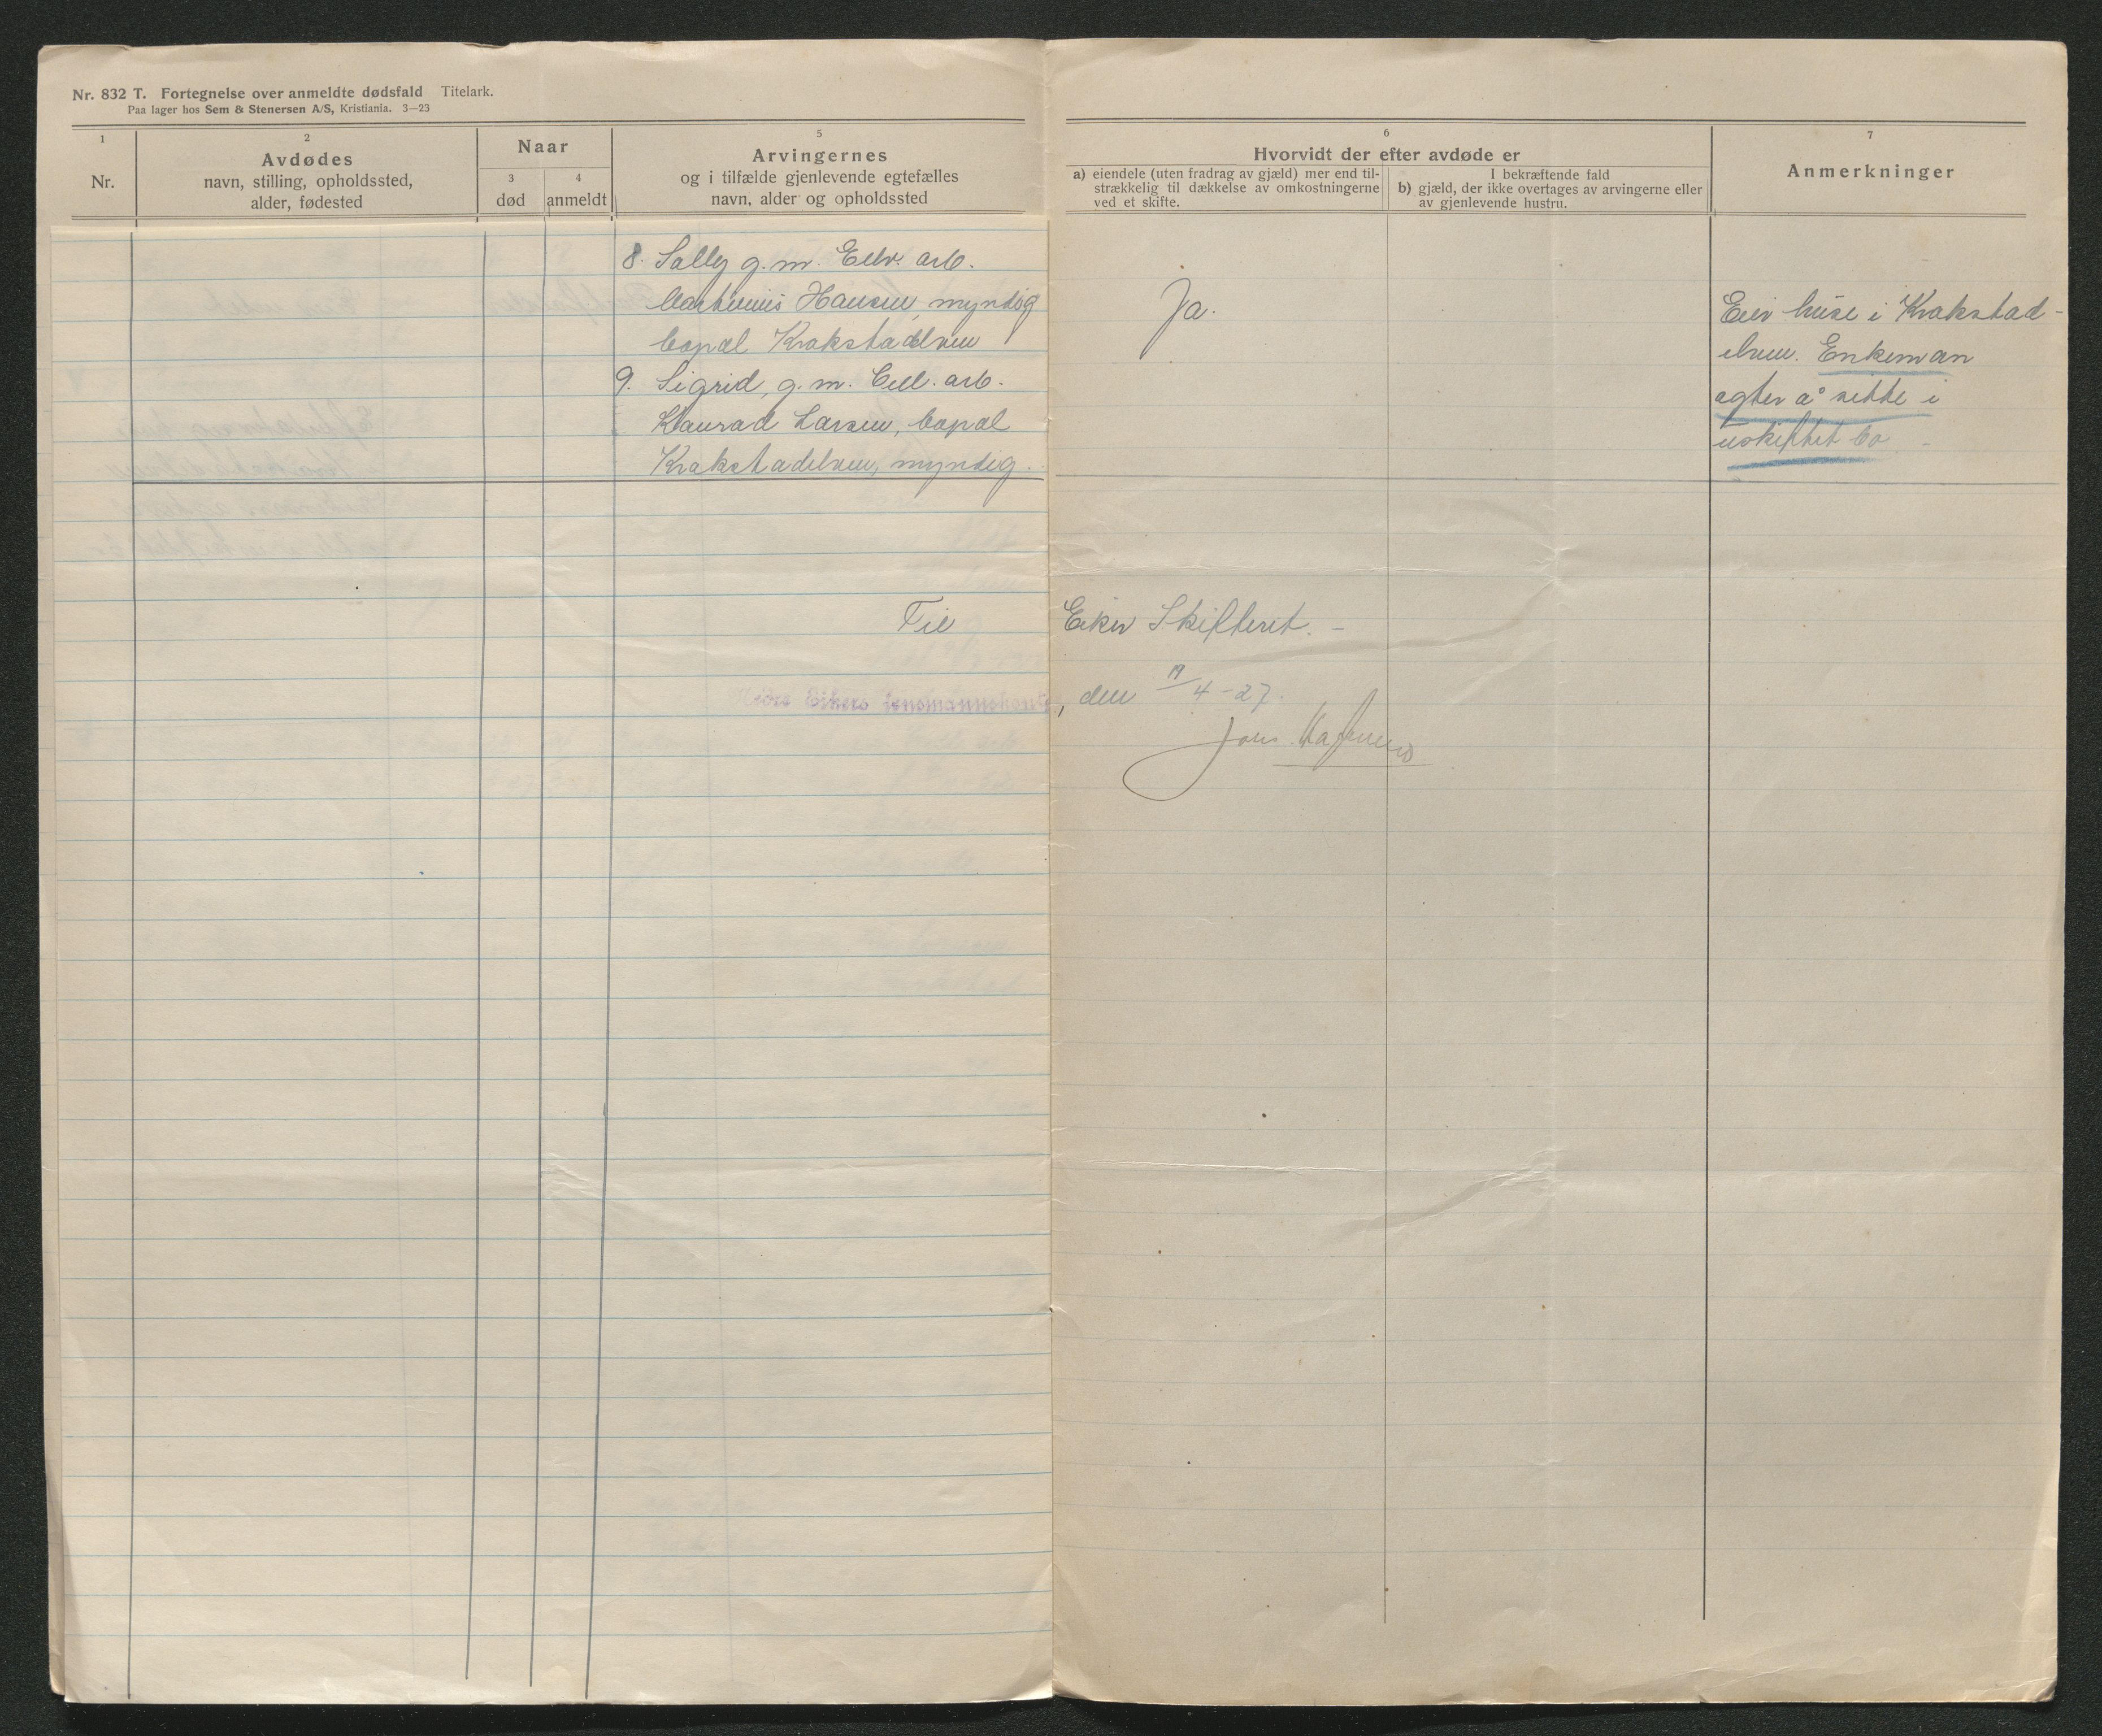 Nr. 832 T. Fortegnelse over anmeldte dødsfald Titelark.
Paa lager hos Sem & Stenersen A/S, Kristiania. 3—23
1
Nr.
2
Avdødes
navn, stilling, opholdssted,
alder, fødested
Naar
3
død
4
anmeldt
5
Arvingernes
og i tilfælde gjenlevende egtefælles
navn, alder og opholdssted
6
Hvorvidt der efter avdøde er
a) eiendele (uten fradrag av gjæld) mer end til-
strækkelig til dækkelse av omkostningerne
ved et skifte.
I bekræftende fald
b) gjæld, der ikke overtages av arvingerne eller
av gjenlevende hustru.
7
Anmerkninger
8. Sally g. m. Cell. arb.
Hansen, myndig
bopæl Krokstadelven
9. Sigrid, g. m. Cell. arb.
Konrad Larsen, bopæl
Krokstadelven, myndig.
Ja.
Eier huse i Krokstad-
elven. Enkeman
agter å sitte i
uskiftet bo
Til Eiker Skifteret. -
Nedre Eikers lensmannskontor, den 19/4-27.